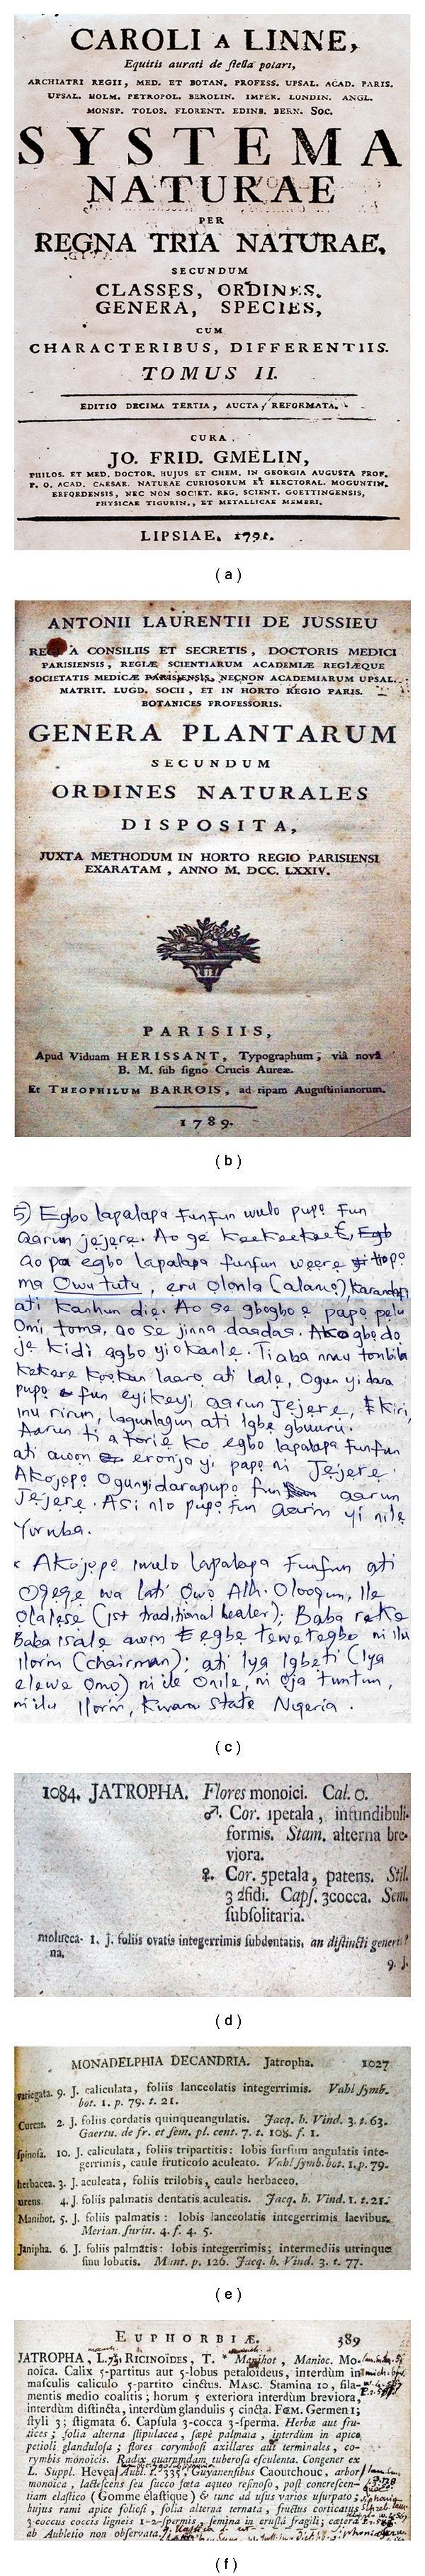 CAROLI A LINNE,
Equitis aurati de stella polari,
ARCHIATRI REGII, MED. ET BOTAN. PROFESS. UPSAL. ACAD. PARIS.
UPSAL. HOLM. PETROPOL. BEROLIN. IMPER. LONDIN. ANGL.
MONSP. TOLOS. FLORENT. EDINB. BERN. Soc.
SYSTEMA
NATURAE
PER
REGNA TRIA NATURAE,
SECUNDUM
CLASSES, ORDINES,
GENERA, SPECIES,
CUM
CHARACTERIBUS, DIFFERENTIIS.
TOMUS II.
EDITIO DECIMA TERTIA, AUCTA, REFORMATA.
CURA
JO. FRID. GMELIN,
PHILOS. ET MED. DOCTOR. HUJUS ET CHEM. IN GEORGIA AUGUSTA PROF.
P. O. ACAD. CAESAR. NATURAE CURIOSORUM ET ELECTORAL. MOGUNTIN.
ERFORDENSIS, NEC NON SOCIET. REG. SCIENT. GOETTINGENSIS,
PHYSICAE TIGURIN., ET METALLICAE MEMBRI.
LIPSIAE. 1791.
(a)
ANTONII LAURENTII DE JUSSIEU
A CONSILIIS ET SECRETIS, DOCTORIS MEDICI
PARISIENSIS, REGIÆ SCIENTIARUM ACADEMIÆ REGIÆQUE
SOCIETATIS MEDICÆ PARISIENSIS, NECNON ACADEMIARUM UPSAL.
MATRIT. LUGD. SOCII, ET IN HORTO REGIO PARIS.
BOTANICES PROFESSORIS.
GENERA PLANTARUM
SECUNDUM
ORDINES NATURALES
DISPOSITA,
JUXTA METHODUM IN HORTO REGIO PARISIENSI
EXARATAM, ANNO M. DCC. LXXIV.
PARISIIS,
Apud Viduam HERISSANT, Typographum, viâ novâ
B. M. sub signo Crucis Aureæ.
Et THEOPHILUM BARROIS, ad ripam Augustinianorum.
1789.
(b)
5) Egbo lapalapa funfun wulo pupọ fun
aarun jẹjẹrẹ. Ao ge keekeekee,
ao pa egbo lapalapa funfun weere po
ma Owu tutu, eru Olonla (alamo),
ati Kanhun die. Ao se gbogbo ẹ papọ pelu
Omi toma, ao se jinna daadaa. Akọ agbo do
je kidi agbo yi okanle. Ti aba nmu tonbila
kekere kookan laaro ati lale, Ogun yi dara
pupọ fun eyikeyi aarun Jẹjẹrẹ, kiri,
inu rirun, lagunlagun ati Igbẹ gbuuru.
Aarun ti a torie ko egbo lapalapa funfun
ati awon eronja yi papọ ni Jẹjẹrẹ.
Akojọpọ Ogunyi darapupo fun aarun
Jẹjẹrẹ. Asi nlo pupọ fun aarun yi nile
Yoruba.
Akojọpọ iwulo lapalapa Funfun ati
Ogẹgẹ wa lati Owo Alh. Ologun, Ile
Olalese (1st traditional healer); Baba
Baba isale awon egbe tewetegbo ni ilu
Ilorin (chairman); ati Iya Igbeti (Iya
elewe Omo) ni ile Onile, ni oja tuntun,
ni ilu Ilorin, Kwara State Nigeria.
(c)
1084. JATROPHA. Flores monoici. Cal. 0.
♂. Cor. 1petala, infundibuli-
formis. Stam. alterna bre-
viora.
♀. Cor. 5petala, patens. Stil.
3 2fidi. Caps. 3cocca. Sem.
subsolitaria.
molucca- 1. J. foliis ovatis integerrimis subdentatis, an distincti generis?
na.
9. J.
(d)
MONADELPHIA DECANDRIA. Jatropha. 1027
variegata. 9. J. caliculata, foliis lanceolatis integerrimis. Vahl symb.
bot. 1. p. 79. t. 21.
Curcas. 2. J. foliis cordatis quinqueangulatis. Jacq. h. Vind. 3. t. 63.
Gaertn. de fr. et sem. pl. cent. 7. t. 108. f. 1.
spinosa. 10. J. caliculata, foliis tripartitis: lobis sursum angulatis inte-
gerrimis, caule fruticoso aculeato. Vahl symb. bot. 1. p. 79.
herbacea. 3. J. aculeata, foliis trilobis, caule herbaceo.
urens. 4. J. foliis palmatis dentatis aculeatis. Jacq. h. Vind. 1. t. 21.
Manihot. 5. J. foliis palmatis: lobis lanceolatis integerrimis laevibus.
Merian. surin. 4. f. 4. 5.
Janipha. 6. J. foliis palmatis: lobis integerrimis; intermediis utrinque
sinu lobatis. Mant. p. 126. Jacq. h. Vind. 3. t. 77.
(e)
EUPHORBIÆ. 389
JATROPHA, L. RICINOÏDES, T. * Manihot, Manioc. Mo-
noïca. Calix 5-partitus aut 5-lobus petaloïdeus, interdùm in
masculis caliculo 5-partito cinctus. MASC. Stamina 10, fila-
mentis medio coalitis; horum 5 exteriora interdùm breviora,
interdùm distincta, interdùm glandulis 5 cincta. FŒM. Germen 1;
styli 3; stigmata 6. Capsula 3-cocca 3-sperma. Herbæ aut fru-
tices; folia alterna stipulacea, sæpè palmata, interdùm in apice
petioli glandulosa; flores corymbosi axillares aut terminales, co-
rymbis monoïcis. Radix quarumdam tuberosa esculenta. Congener ex
L. Suppl. Hevea Aubl. t. 335, Guyanensibus Caoutchouc, arbor
monoïca, lactescens seu succo fœta aqueo resinoso, post concrescen-
tiam elastico (Gomme élastique) & tunc ad usus varios usurpato;
hujus rami apice foliosi, folia alterna ternata, fructus corticatus
3-coccus coccis ligneis 1-2-spermis, semina in crustâ fragili; cætera
ab Aubletio non observata.
(f)